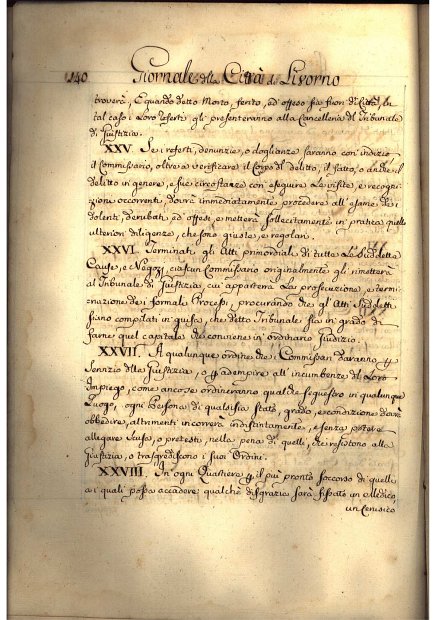 140 Giornale della Città di Livorno
troverà, E quando detto Morto, ferito, ed' offeso sia fuori di Città, In
tal caso i Loro referti gli presenteranno alla Cancelleria del Tribunale
di Giustizia.
XXV. Se i referti, denunzie, o doglianze saranno con' indizio
il Commissario, oltre a verificare il Corpo del delitto, il fatto, o anche il
delitto in genere, e sue circostanze con' eseguire Le visite, e recogni-
zioni occorrenti, dovrà immediatamente procedere all' esame dei
dolenti, derubati, ed' offesi, e metterà sollecitamente in pratica quelle
ulteriori diligenze, che sono giuste, e regolari.
XXVI. Terminati gli Atti primordiali di tutte Le Suddette
Cause, e Negozj, ciascun Commissario originalmente gli rimetterà
al Tribunale di Giustizia, cui apparterrà La prosecuzione, e termi-
nazione dei formali Processi, procurando che gl' Atti Suddetti
siano compilati in guisa, che detto Tribunale sia in grado di
farne quel capitale che conviene in' ordinario Giudizio.
XXVII. A qualunque ordine che i Commissari daranno p
Servizio della Giustizia, o p adempire all' incumbenze del Loro
Impiego, come ancora ordineranno qualche sequestro in qualunque
Luogo, ogni Persona di qualsisia stato, grado, e condizione dovrà
obbedire, altrimenti incorrerà indistintamente, e senza potere
allegare scusa, o pretesto, nella pena di quelli, che resistono alla
Giustizia, o trasgrediscono i suoi Ordini.
XXVIII. In' ogni Quartiere p il più pronto soccorso di quelli
a i quali possa accadere qualche disgrazia sarà fissato un Medico,
un Cerusico